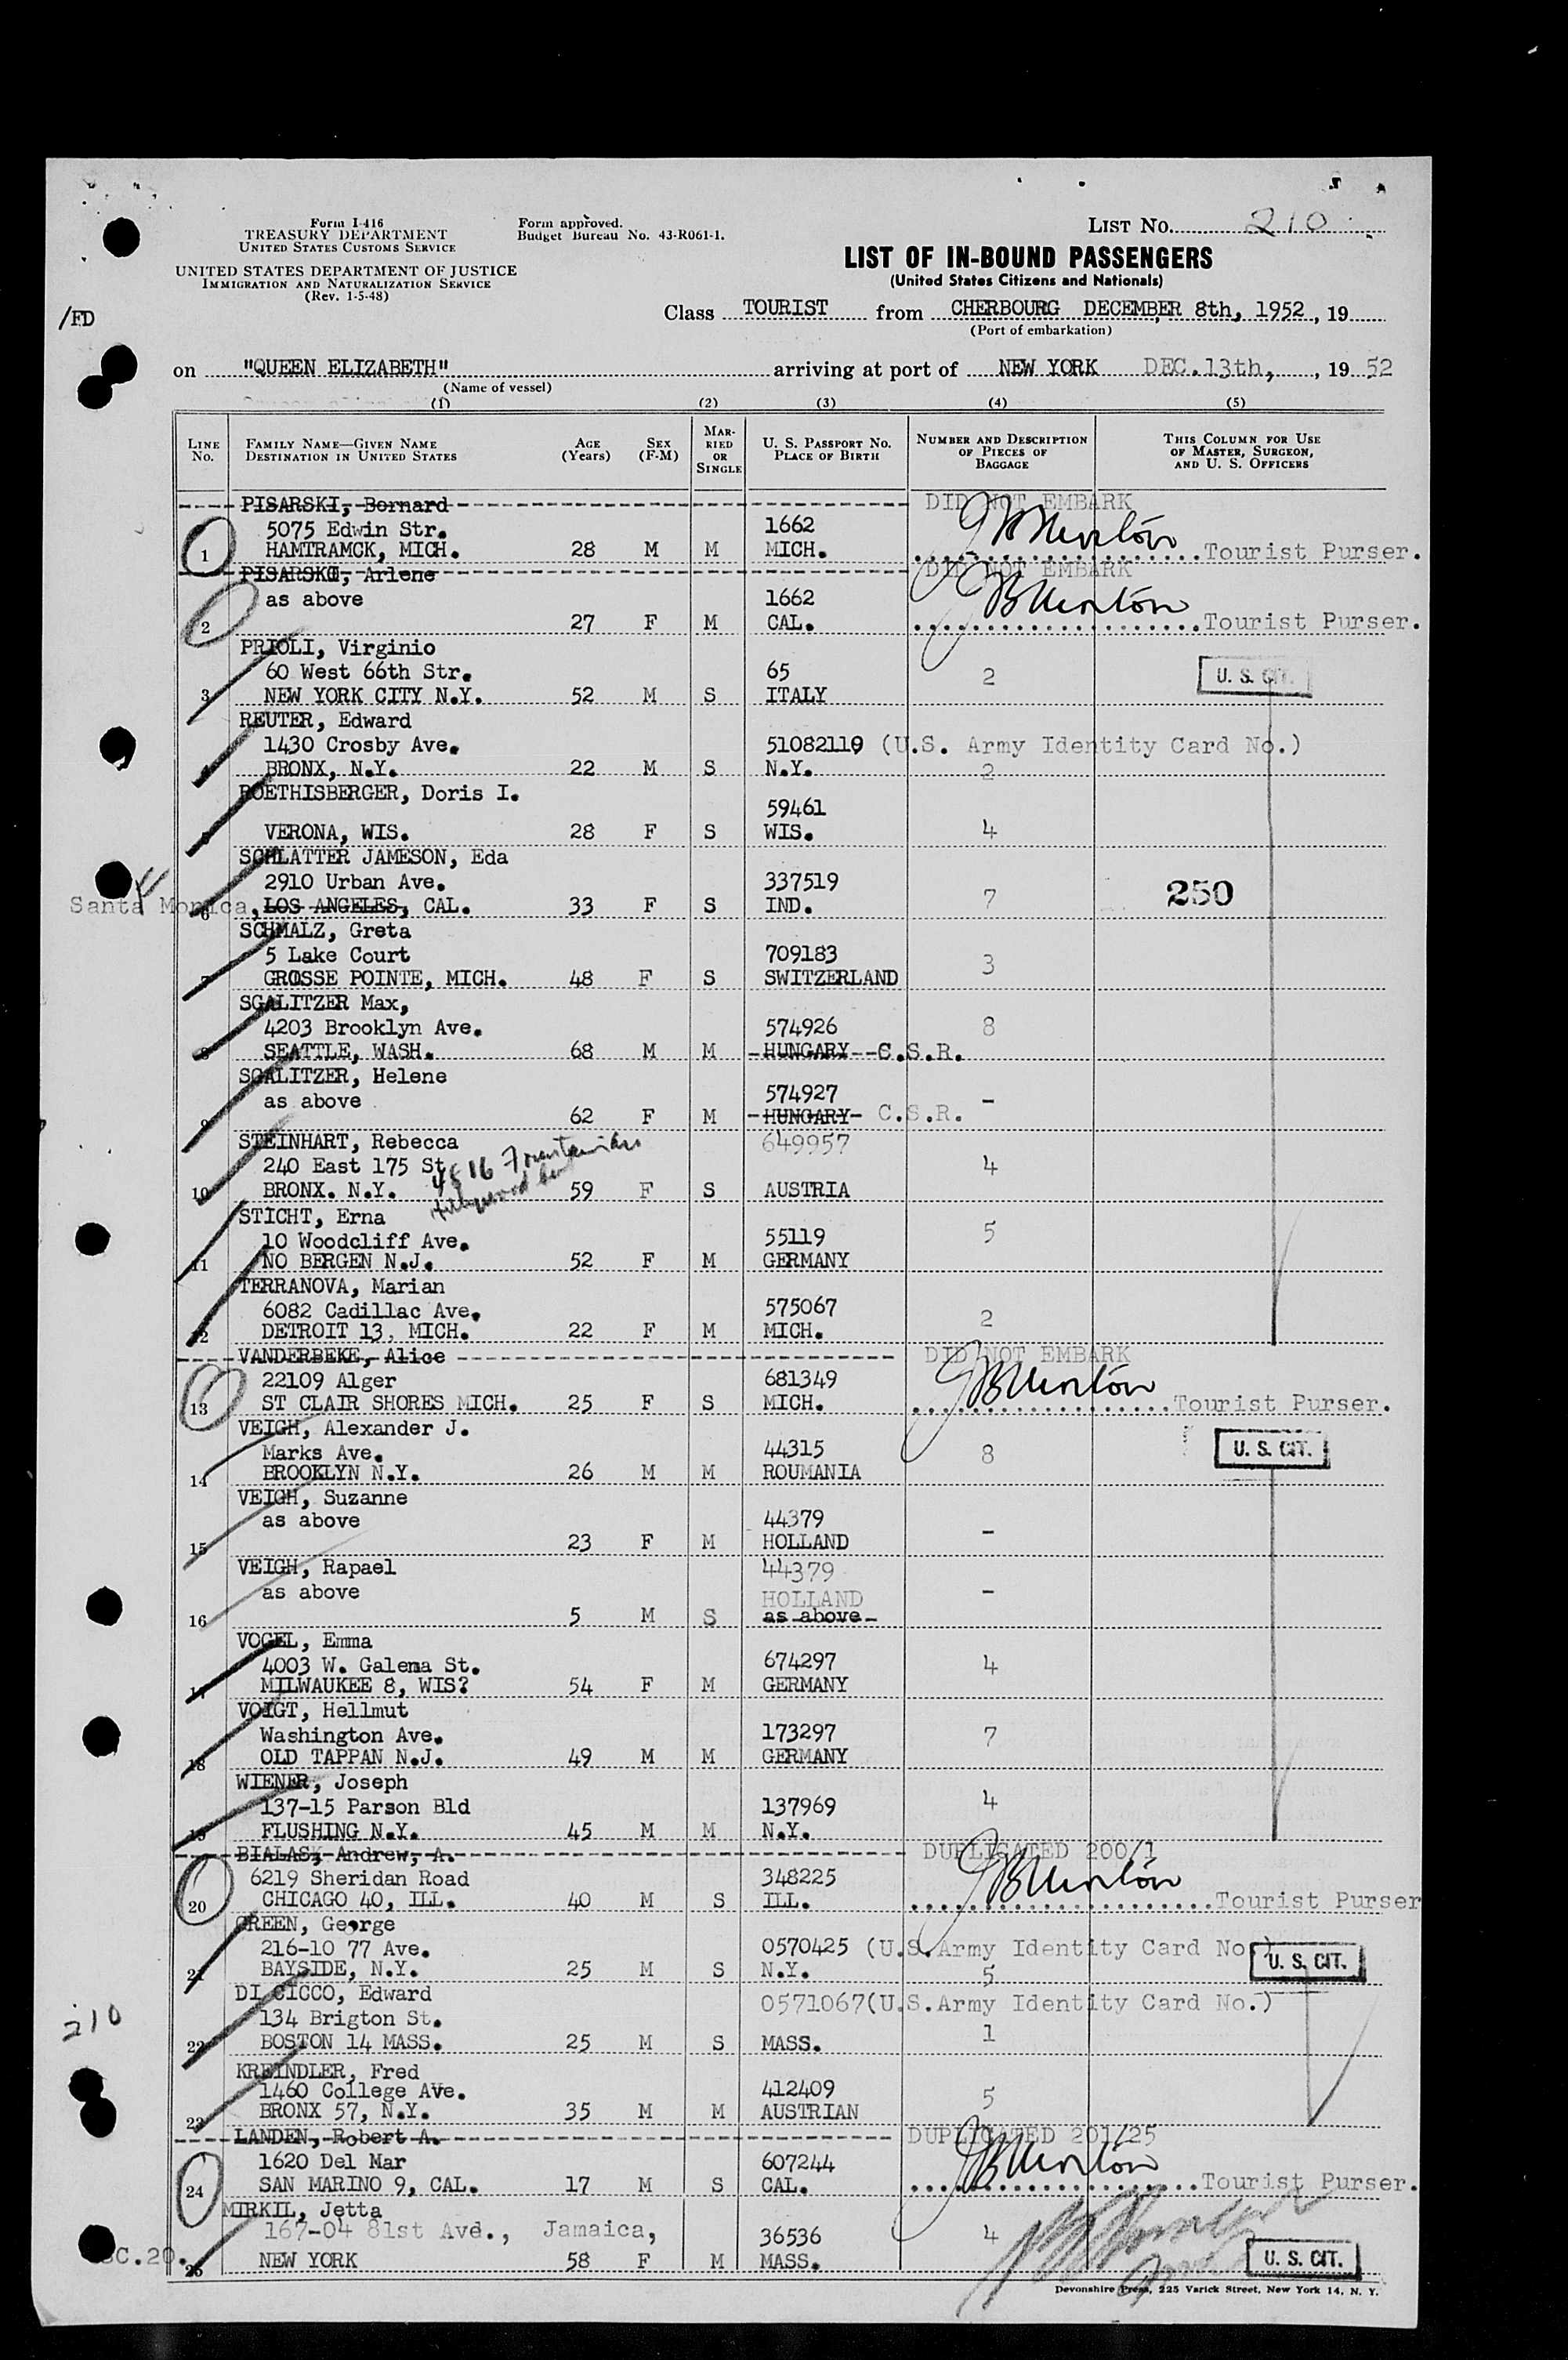 Form I-416
TREASURY DEPARTMENT
UNITED STATES CUSTOMS SERVICE
UNITED STATES DEPARTMENT OF JUSTICE
IMMIGRATION AND NATURALIZATION SERVICE
(Rev. 1-5-48)
Form approved.
Budget Bureau No. 43-R061-1.
LIST NO. 210
LIST OF IN-BOUND PASSENGERS
(United States Citizens and Nationals)
/FD
Class TOURIST from CHERBOURG DECEMBER 8th, 1952, 19
(Port of embarkation)
on "QUEEN ELIZABETH" arriving at port of NEW YORK DEC.13th, , 19 52
(Name of vessel)
(1) (2) (3) (4) (5)
LINE NO. FAMILY NAME—GIVEN NAME DESTINATION IN UNITED STATES AGE (Years) SEX (F-M) MARRIED OR SINGLE U. S. PASSPORT NO. PLACE OF BIRTH NUMBER AND DESCRIPTION OF PIECES OF BAGGAGE THIS COLUMN FOR USE OF MASTER, SURGEON, AND U. S. OFFICERS
PISARSKI, Bernard DID NOT EMBARK
5075 Edwin Str. 1662
1 HAMTRAMCK, MICH. 28 M M MICH. Tourist Purser.
PISARSKI, Arlene DID NOT EMBARK
as above 1662
2 27 F M CAL. Tourist Purser.
PRIOLI, Virginio
60 West 66th Str. 65 2 U. S. CIT.
3 NEW YORK CITY N.Y. 52 M S ITALY
REUTER, Edward
1430 Crosby Ave. 51082119 (U.S. Army Identity Card No.)
4 BRONX, N.Y. 22 M S N.Y. 2
ROETHISBERGER, Doris I.
59461
5 VERONA, WIS. 28 F S WIS. 4
SCHLATTER JAMESON, Eda
2910 Urban Ave. 337519 7 250
Santa Monica, 6 LOS ANGELES, CAL. 33 F S IND.
SCHMALZ, Greta
5 Lake Court 709183 3
7 GROSSE POINTE, MICH. 48 F S SWITZERLAND
SGALITZER Max,
4203 Brooklyn Ave. 574926 8
8 SEATTLE, WASH. 68 M M HUNGARY C.S.R.
SGALITZER, Helene
as above 574927 -
9 62 F M HUNGARY C.S.R.
STEINHART, Rebecca 649957
240 East 175 St 4516 4
10 BRONX. N.Y. 59 F S AUSTRIA
STICHT, Erna
10 Woodcliff Ave. 55119 5
11 NO BERGEN N.J. 52 F M GERMANY
TERRANOVA, Marian
6082 Cadillac Ave. 575067 2
12 DETROIT 13, MICH. 22 F M MICH.
VANDERBEKE, Alice DID NOT EMBARK
22109 Alger 681349
13 ST CLAIR SHORES MICH. 25 F S MICH. Tourist Purser.
VEIGH, Alexander J.
Marks Ave. 44315 8 U. S. CIT.
14 BROOKLYN N.Y. 26 M M ROUMANIA
VEIGH, Suzanne
as above 44379 -
15 23 F M HOLLAND
VEIGH, Rapael 44379
as above HOLLAND -
16 5 M S as above
VOGEL, Emma
4003 W. Galena St. 674297 4
17 MILWAUKEE 8, WIS? 54 F M GERMANY
VOIGT, Hellmut
Washington Ave. 173297 7
18 OLD TAPPAN N.J. 49 M M GERMANY
WIENER, Joseph
137-15 Parson Bld 137969 4
19 FLUSHING N.Y. 45 M M N.Y.
BIALAS, Andrew, A. DUPLICATED 200/1
6219 Sheridan Road 348225
20 CHICAGO 40, ILL. 40 M S ILL. Tourist Purser
GREEN, George
216-10 77 Ave. 0570425 (U.S.Army Identity Card No.)
21 BAYSIDE, N.Y. 25 M S N.Y. 5 U. S. CIT.
DI CICCO, Edward 0571067(U.S.Army Identity Card No.)
210 134 Brigton St. 1
22 BOSTON 14 MASS. 25 M S MASS.
KREINDLER, Fred
1460 College Ave. 412409 5
23 BRONX 57, N.Y. 35 M M AUSTRIAN
LANDEN, Robert A. DUPLICATED 201/25
1620 Del Mar 607244
24 SAN MARINO 9, CAL. 17 M S CAL. Tourist Purser.
MIRKIL, Jetta
167-04 81st Ave., Jamaica, 36536 4
25 NEW YORK 58 F M MASS. U. S. CIT.
Devonshire Press, 225 Varick Street, New York 14, N. Y.